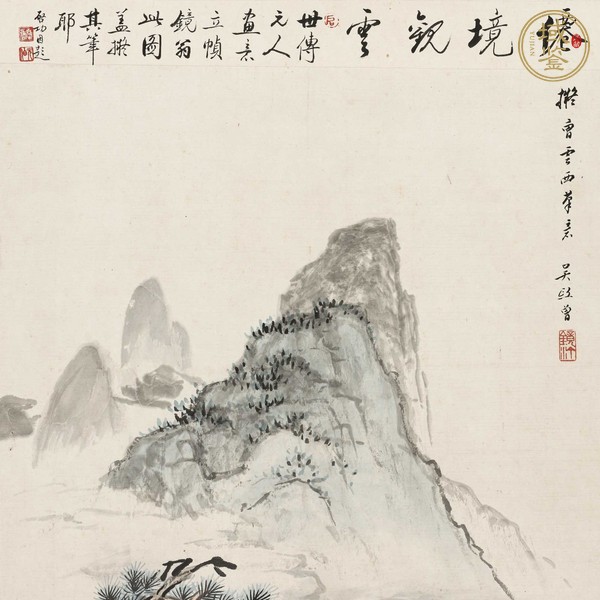 僊境觀雲
世傳
元人
畫意
立幀
鏡翁
此圖
蓋擬
其筆
耶
啓功
擬曹雲西筆意 吳熙曾
鏡汀